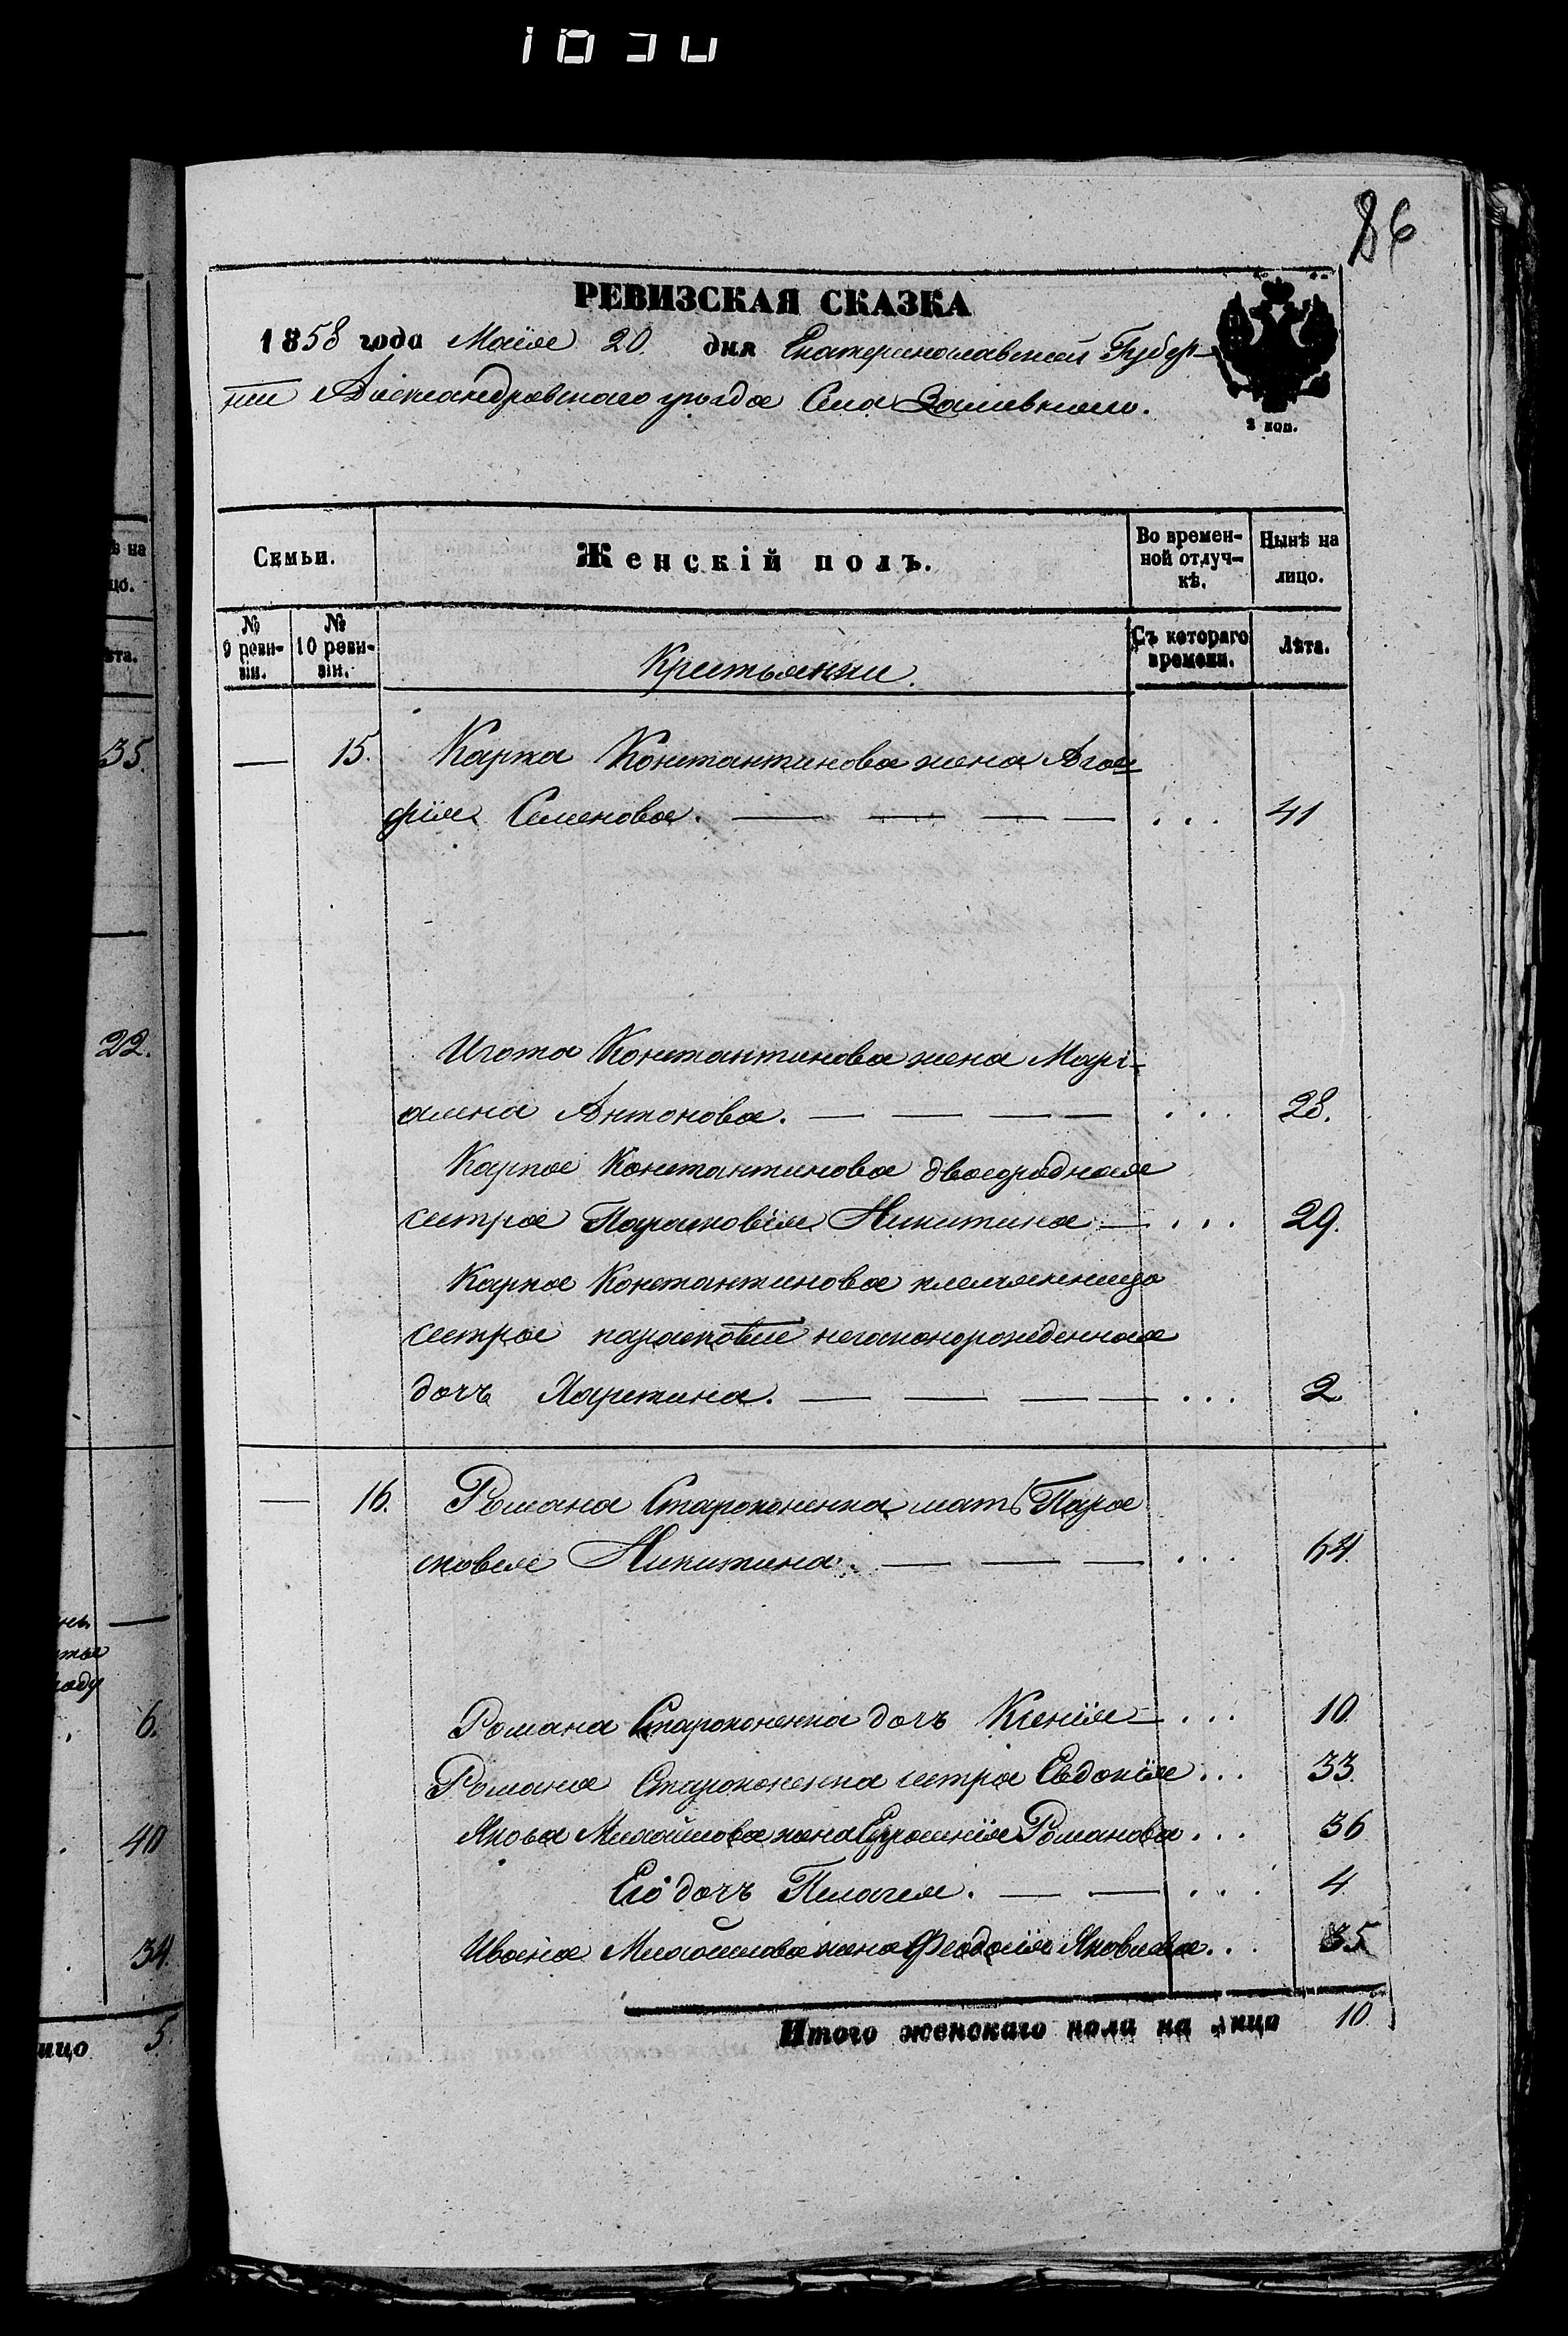 1850
86
РЕВИЗСКАЯ СКАЗКА
1858 года Маія 20. дня Екатеринославской Губер-
ніи Александровскаго уѣзда Села
2 коп.
ѣ на
цо.
ѣта.
35.
22.
6.
40
34.
ицо 5.
Семьи.
Женскій полъ.
Во времен-
ной отлуч-
кѣ.
Нынѣ на
лицо.
№
9 реви-
зіи.
№
10 реви-
зіи.
Крестьянки.
Съ котораго
времени.
Лѣта.
— 15. Карпа Константинова жена Ага-
фія Семенова. — — — — ... 41
Игота Константинова жена Марі-
амна Антонова. — — — — ... 28.
Карпа Константинова двоюродная
сестра Парасковія Никитина — ... 29.
Карпа Константинова племянница
сестры парасковіи незаконорожденная
дочь Харитина. — — — — ... 2
— 16. Романа Староконенка мать Пара
сковія Никитина. — — — ... 64.
Романа Староконенка дочь Ксенія — ... 10.
Романа Староконенка сестра Евдокія ... 33.
Якова Михайлова жена Ефросинія Романова ... 36
Его дочь Пелагея. — — ... 4
Ивана Михайлова жена Феодосія Яковлева. .. 35
Итого женскаго пола на лицо 10